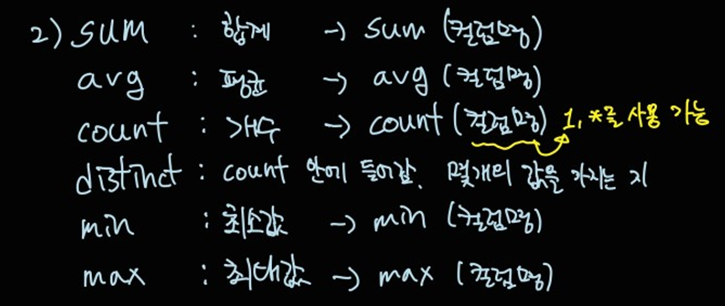 2) sum : 합계 → sum (컬럼명)
avg : 평균 → avg (컬럼명)
count : 개수 → count (컬럼명) 1, *을 사용 가능
distinct : count 안에 들어감. 몇개의 값을 가지는 지
min : 최소값 → min (컬럼명)
max : 최대값 → max (컬럼명)